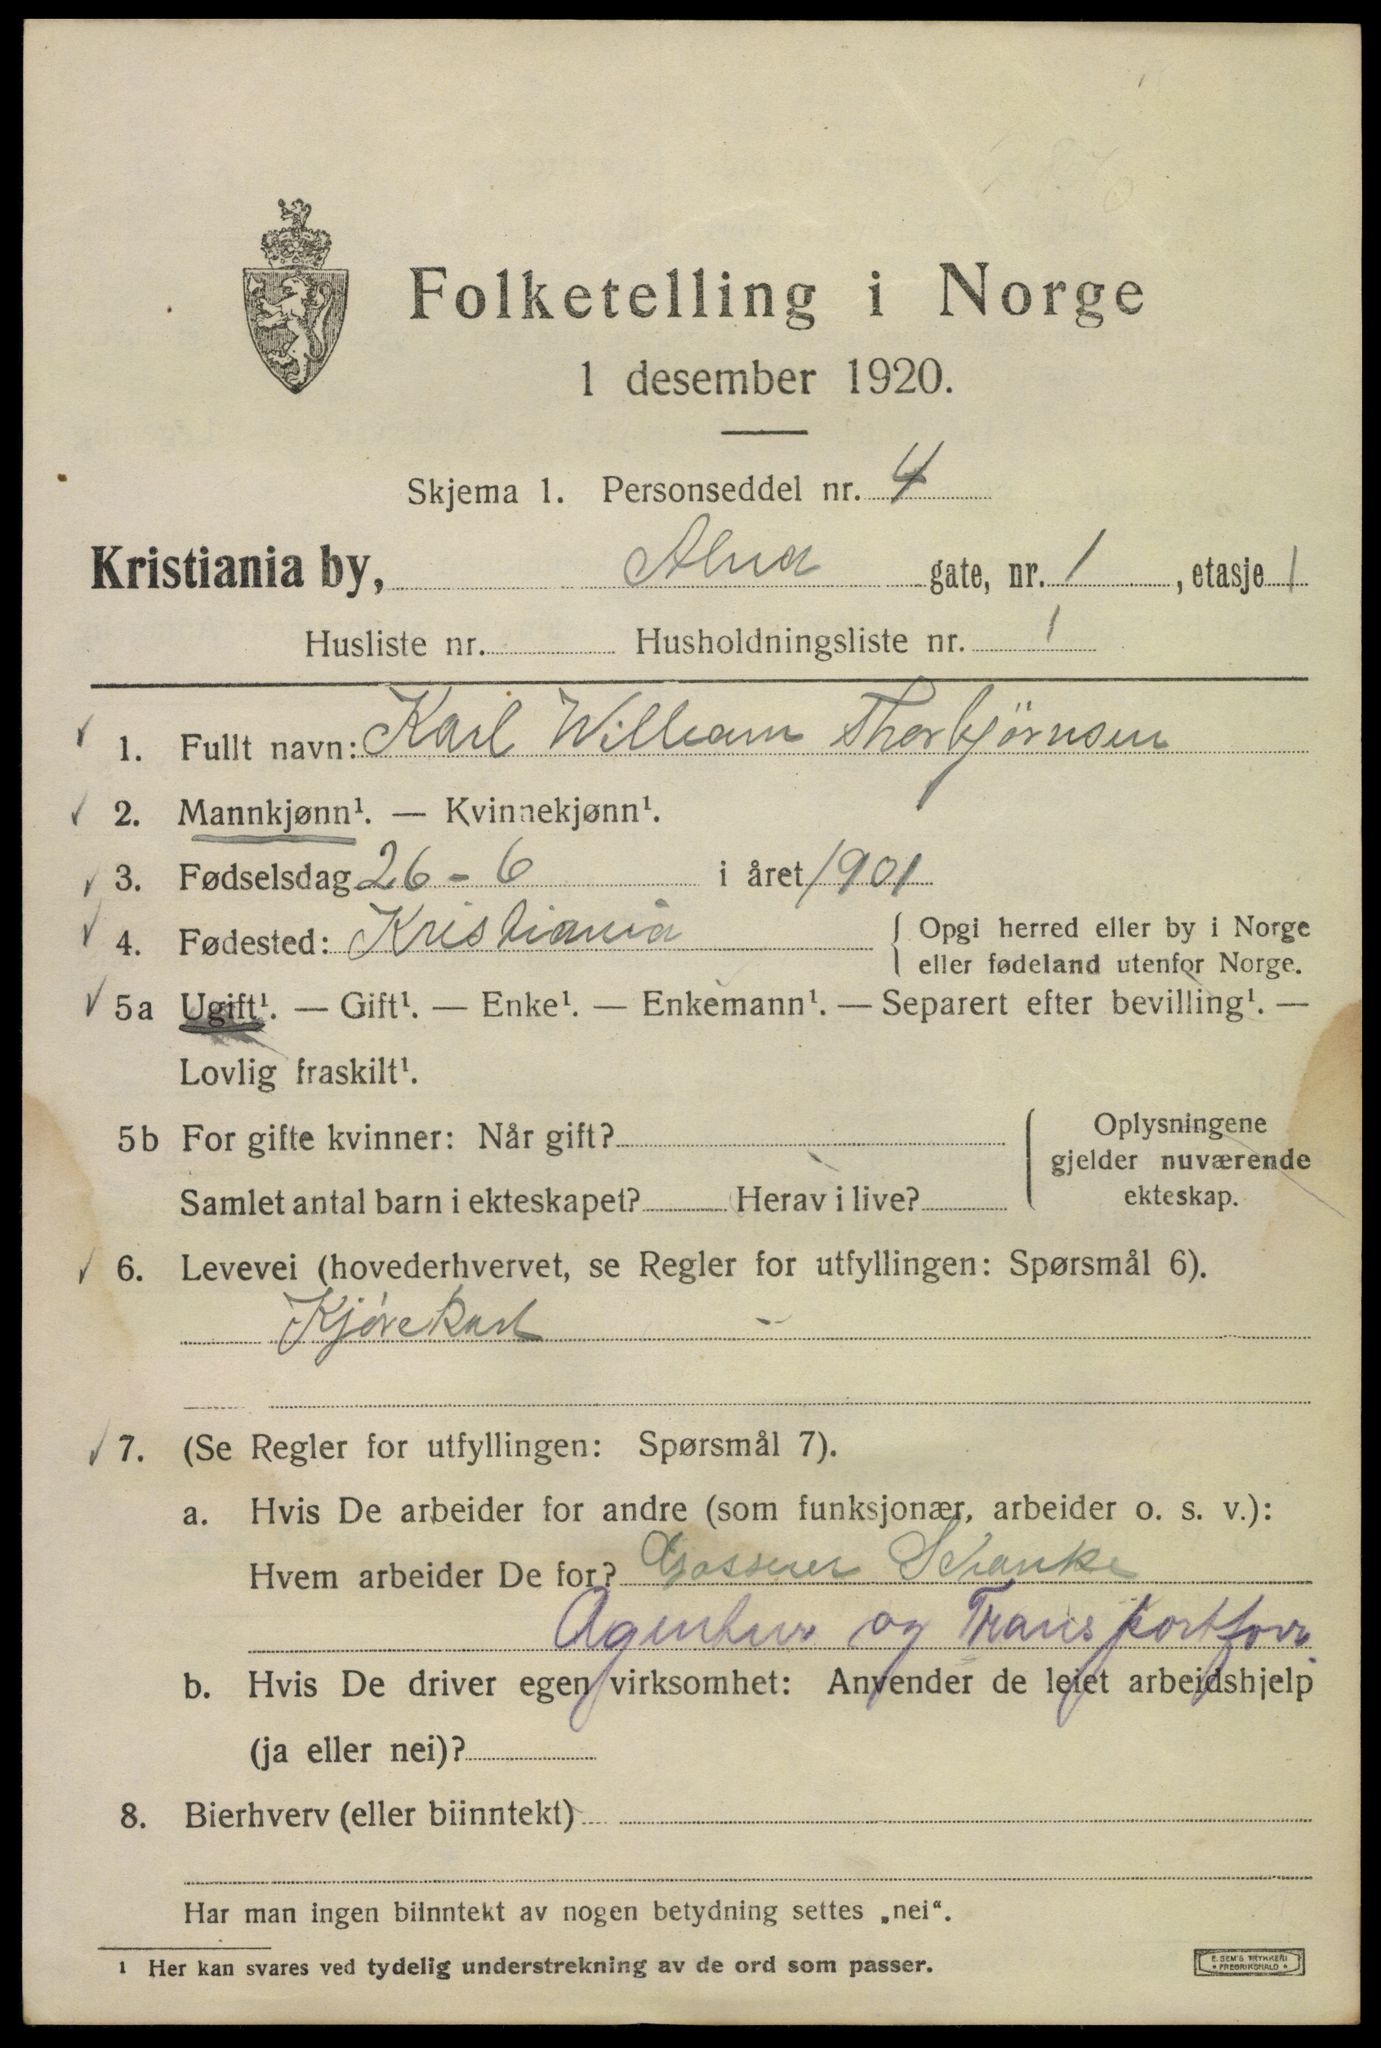 Folketelling i Norge
1 desember 1920.
Skjema 1. Personseddel nr. 4
Kristiania by, Alna gate, nr. 1, etasje 1
Husliste nr. Husholdningsliste nr. 1
1. Fullt navn: Karl William Thorbjørnsen
2. Mannkjønn¹. — Kvinnekjønn¹.
3. Fødselsdag 26 - 6 i året 1901
4. Fødested: Kristiania { Opgi herred eller by i Norge
eller fødeland utenfor Norge.
5a Ugift¹. — Gift¹. — Enke¹. — Enkemann¹. — Separert efter bevilling¹. —
Lovlig fraskilt¹.
5b For gifte kvinner: Når gift?
Samlet antal barn i ekteskapet? Herav i live?
Oplysningene
gjelder nuværende
ekteskap.
6. Levevei (hovederhvervet, se Regler for utfyllingen: Spørsmål 6).
Kjørekarl
7. (Se Regler for utfyllingen: Spørsmål 7).
a. Hvis De arbeider for andre (som funksjonær, arbeider o. s. v.):
Hvem arbeider De for? Grosserer Schanke
Agentur og Transportforr
b. Hvis De driver egen virksomhet: Anvender de leiet arbeidshjelp
(ja eller nei)?
8. Bierhverv (eller biinntekt)
Har man ingen biinntekt av nogen betydning settes „nei“.
1 Her kan svares ved tydelig understrekning av de ord som passer.
E. SEM'S TRYKKERI
* FREDRIKSHALD *